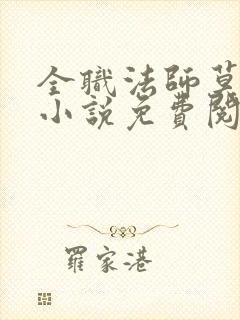 全職法師莫
小說免費閱
羅家港